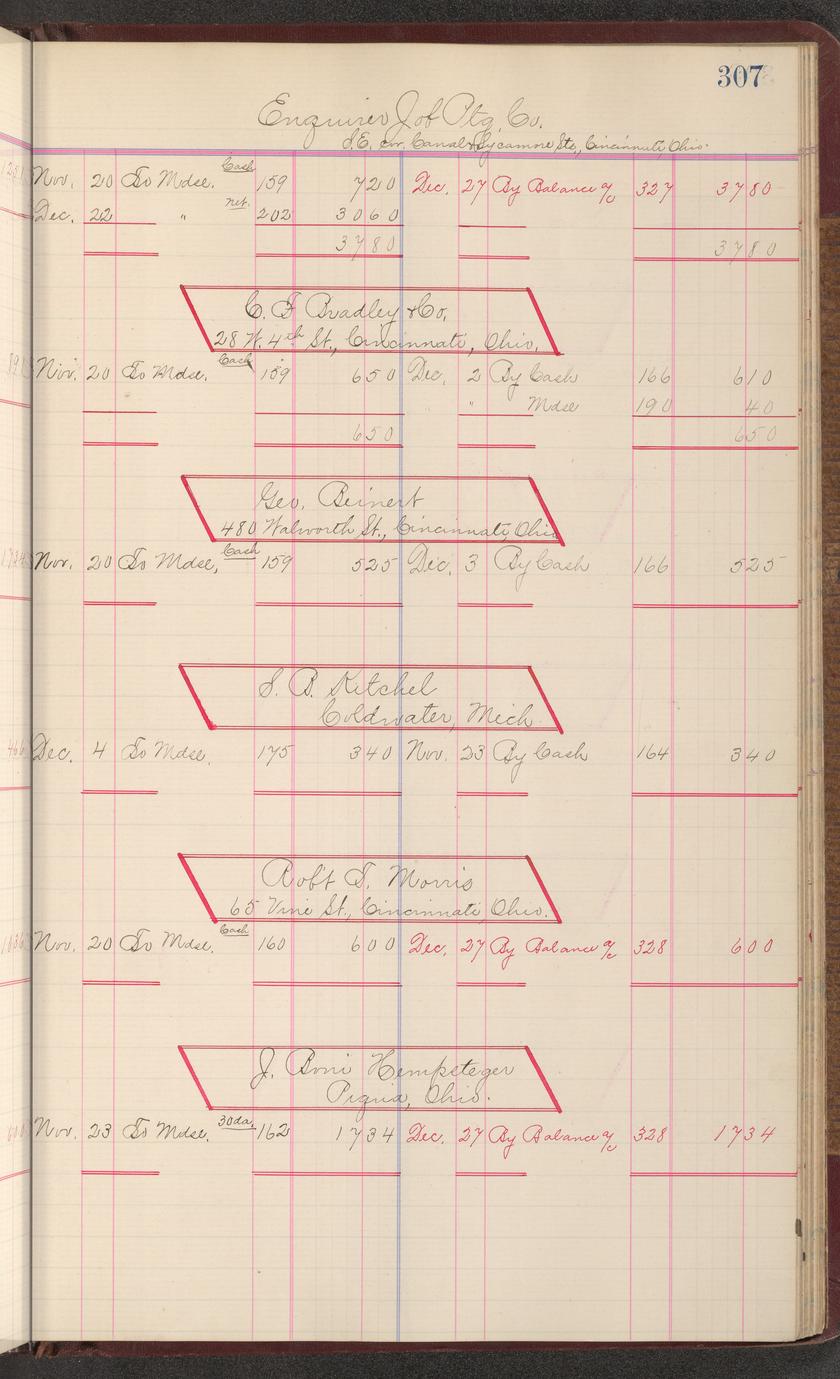 307
Enquirer Job Ptg. Co.
S.E. cor. Canal & Sycamore Sts., Cincinnati, Ohio.
Nov. 20 To Mdse. Cash 159 7 20 Dec. 27 By Balance a/c 327 37 80
Dec. 22 " net. 202 30 60
37 80 37 80
C. F. Bradley & Co.
28 W. 4th St., Cincinnati, Ohio.
Nov. 20 To Mdse. Cash 159 6 50 Dec. 2 By Cash 166 6 10
" Mdse 190 40
6 50 6 50
Geo. Beinert
480 Walworth St., Cincinnati, Ohio
Nov. 20 To Mdse, Cash 159 5 25 Dec. 3 By Cash 166 5 25
S. B. Kitchel
Coldwater, Mich.
Dec. 4 To Mdse. 175 3 40 Nov. 23 By Cash 164 3 40
Rob't T. Morris
65 Vine St., Cincinnati, Ohio.
Nov. 20 To Mdse. Cash 160 6 00 Dec. 27 By Balance a/c 328 6 00
J. Boni Hempsteger
Piqua, Ohio.
Nov. 23 To Mdse. 30 da. 162 17 34 Dec. 27 By Balance a/c 328 17 34